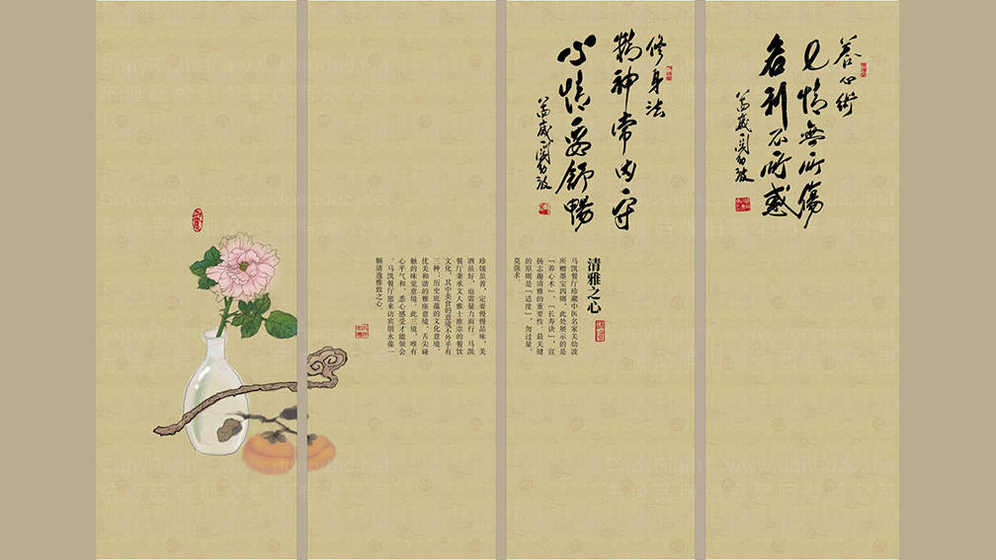 養心術
七情無所傷
名利不所惑
修身法
精神常内守
心情要舒暢
清雅之心
马凯餐厅珍藏中医名家关幼波
所赠墨宝四则，此处展示的是
「养心术」、「长寿诀」，宣
扬志趣清雅的重要性，最关键
的原则是「适度」，勿过量，
莫强求。
珍馐虽善，定要慢慢品味，美
酒虽好，也需量力而行。马凯
餐厅秉承文人雅士推崇的餐饮
文化，其中美食的意境不外乎有
三种：历史底蕴的文化意境、
优美和谐的雅座意境、舌尖碰
触的味觉意境。此三境，唯有
心平气和、悉心感受才能领会
。马凯餐厅愿来访宾朋永葆一
颗清逸雅致之心。